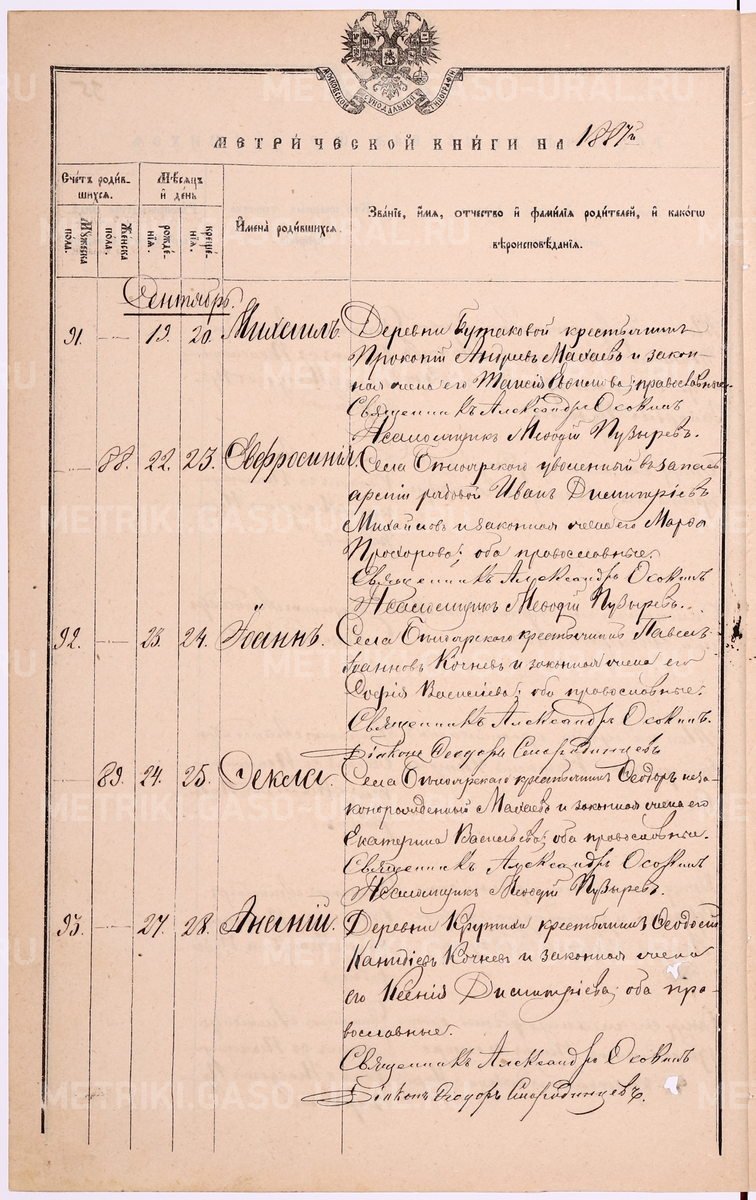 МОСКОВСКОЙ СѴНОДАЛЬНОЙ ТИПОГРАФІИ
МЕТРИ́ЧЕСКОЙ КНИ́ГИ НА 1887 г.
Сче́тъ роди́в-
шихсѧ.
Мѣ́сѧцъ
и҆ де́нь
И҆мена̀ роди́вшихсѧ.
Зва́нїе, и҆́мѧ, ѻ҆́тчество и҆ фамилїѧ роди́телей, и҆ како́гѡ
вѣроисповѣ́данїѧ.
Мꙋ́жеска
по́ла.
Же́нска
по́ла.
рожде́-
нїѧ.
креще́-
нїѧ.
Сентябрь.
91. — 19. 20. Михаилъ. Деревни Бутаковой крестьянинъ
Прокопій Андреевъ Махаевъ и закон-
ная жена его Таисія; православные.
Священникъ Александръ Осокинъ
Псаломщикъ Меѳодій Пузыревъ.
— 88. 22. 23. Евфросинія Села уволенный въ запасъ
арміи рядовой Иванъ Димитріевъ
Михайловъ и законная жена его Марѳа
Прохорова; оба православные.
Священникъ Александръ Осокинъ
Псаломщикъ Меѳодій Пузыревъ.
92. — 23. 24. Іоаннъ. Села крестьянинъ Павелъ
Іоанновъ Кочневъ и законная жена его
Софія Васильева; оба православные.
Священникъ Александръ Осокинъ.
Діаконъ Ѳеодоръ Смородинцевъ
— 89. 24. 25. Ѳекла. Села крестьянинъ Ѳеодоръ неза-
конорожденный Махаевъ и законная жена его
Екатерина Васильева; оба православные.
Священникъ Александръ Осокинъ
Псаломщикъ Меѳодій Пузыревъ.
93. — 27. 28. Деревни Крутихи крестьянинъ Ѳеодосій
Кочневъ и законная жена
его Ксенія Димитріева; оба пра-
вославные.
Священникъ Александръ Осокинъ
Діаконъ Ѳеодоръ Смородинцевъ.
METRIKI.GASO-URAL.RU